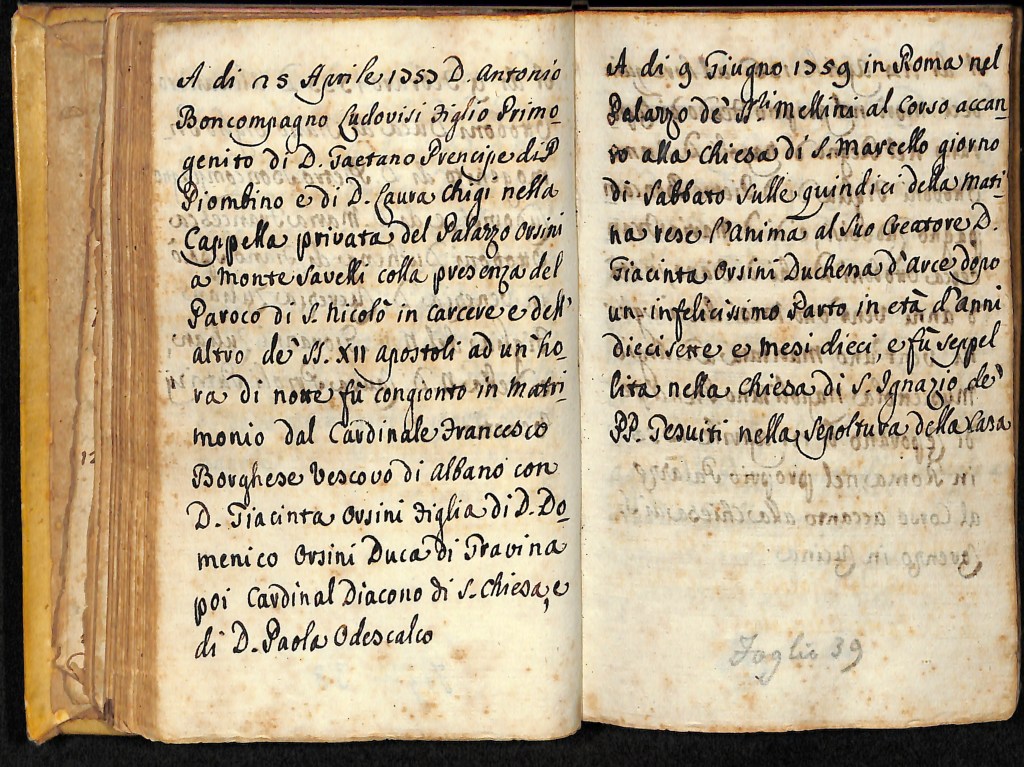 A di 25 Aprile 1757 D. Antonio
Boncompagno Ludovisi Figlio Primo-
genito di D. Gaetano Prencipe di P
Piombino e di D. Laura Chigi nella
Cappella privata del Palazzo Orsini
a Monte Savelli colla presenza del
Paroco di S. Nicolò in carcere e dell'
altro de' SS. XII Apostoli ad un' ho-
ra di notte fù congionto in Matri-
monio dal Cardinale Francesco
Borghese Vescovo di Albano con
D. Giacinta Orsini Figlia di D. Do-
menico Orsini Duca di Gravina
poi Cardinal Diacono di S. Chiesa, e
di D. Paola Odescalco
A di 9 Giugno 1759 in Roma nel
Palazzo de' S.ri Mellini al Corso accan-
to alla Chiesa di S. Marcello giorno
di Sabbato sulle quindici della mati
na rese l'anima al suo Creatore D.
Giacinta Orsini Duchessa d'Arce dopo
un infelicissimo Parto in età d'anni
diecisette e mesi dieci, e fù seppel
lita nella Chiesa di S. Ignazio de'
PP. Gesuiti nella Sepoltura della Casa
Foglio 39